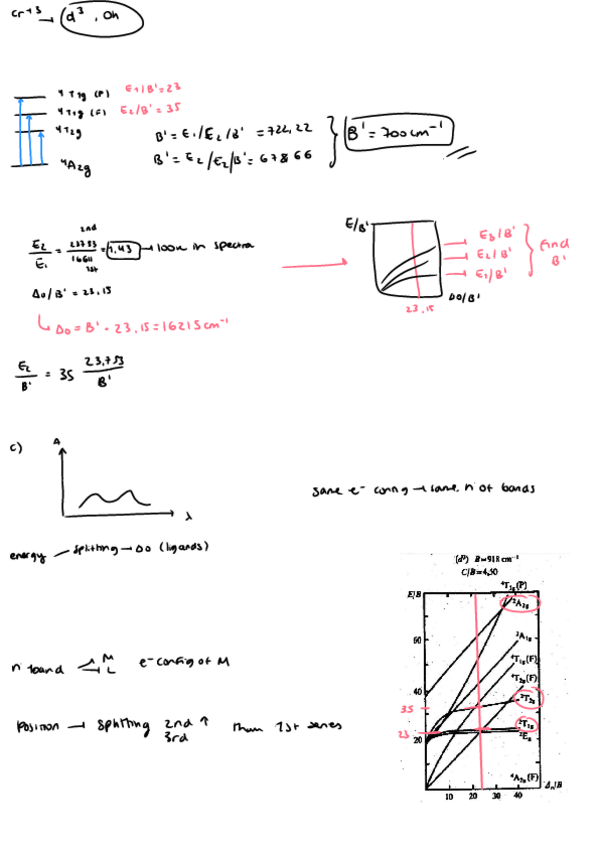 Cr+3 → d³, Oh
⁴T₁g (P) E₁/B'=23
⁴T₁g (F) E₂/B' = 35
⁴T₂g
⁴A₂g
B' = E₁/E₁/B' = 722,22
B' = E₂/E₂/B' = 678,66
B' = 700 cm⁻¹
E₂/E₁ = 2nd 23753/16611 1st = 1,43 → look in spectra
Δo/B' = 23,15
Δo = B' · 23,15 = 16215 cm⁻¹
E₂/B' = 35 23,753/B'
E/B'
E₃/B'
E₂/B'
E₁/B'
find B'
Δo/B'
23,15
c)
A
λ
same e⁻ config → same n° of bands
energy splitting → Δo (ligands)
n° band M L e⁻ config of M
Position → splitting 2nd 3rd ↑ than 1st series
(d³) B=918 cm⁻¹
C/B=4,50
E/B
⁴T₁g(P)
²A₂g
²A₁g
⁴T₁g(F)
⁴T₂g(F)
²T₂g
²T₁g
²Eg
⁴A₂g(F)
60
40
35
23
20
10 20 30 40
Δo/B